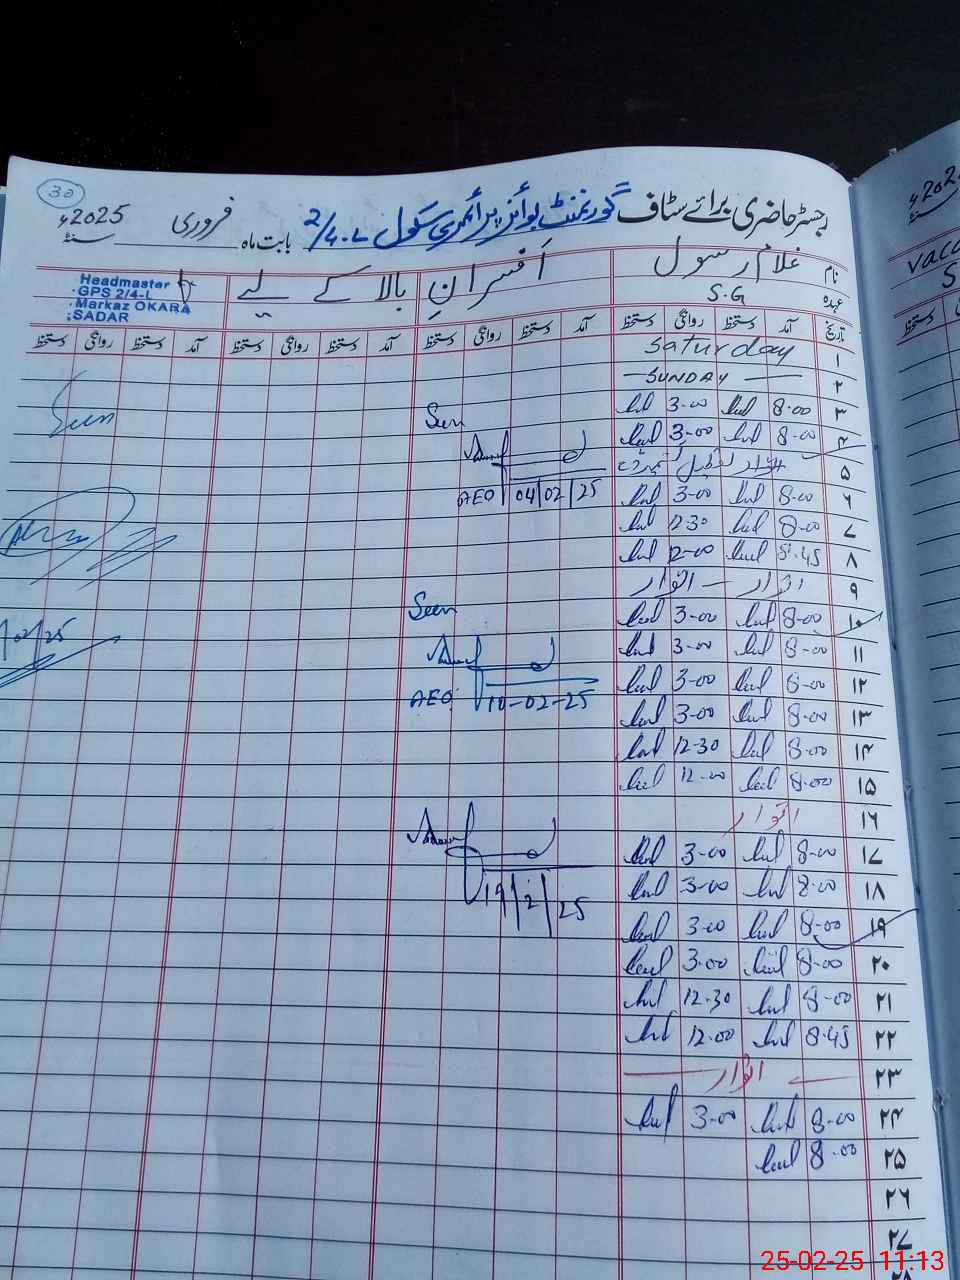 30
رجسٹر حاضری برائے سٹاف گورنمنٹ بوائز پرائمری سکول 2/4-L بابت ماہ فروری سنہ 2025ء
نام غلام رسول افسرانِ بالا کے لیے
عہدہ S.G
Headmaster
GPS 2/4-L
Markaz OKARA
SADAR
تاریخ آمد دستخط روانگی دستخط آمد دستخط روانگی دستخط آمد دستخط روانگی دستخط آمد دستخط روانگی دستخط
۱ Saturday
۲ SUNDAY
۳ 8.00 3-00
Seen
Seen
۴ 8-00 3-00
۵
AEO 04/02/25
۶ 8-00 3-00
۷ 8-00 12-30
۸ 8.45 12-00
۹ اتوار – اتوار
Seen
۱۰ 8-00 3-00
۱۱ 8-00 3-00
/02/25
۱۲ 8-00 3-00
AEO 10-02-25
۱۳ 8-00 3-00
۱۴ 8-00 12-30
۱۵ 8-00 12-00
۱۶ اتوار
۱۷ 8-00 3-00
۱۸ 8-00 3-00
19/2/25
۱۹ 8-00 3-00
۲۰ 8-00 3-00
۲۱ 8-00 12-30
۲۲ 8.45 12.00
۲۳ اتوار
۲۴ 8-00 3-00
۲۵ 8-00
۲۶
۲۷
۲۸
25-02-25 11:13